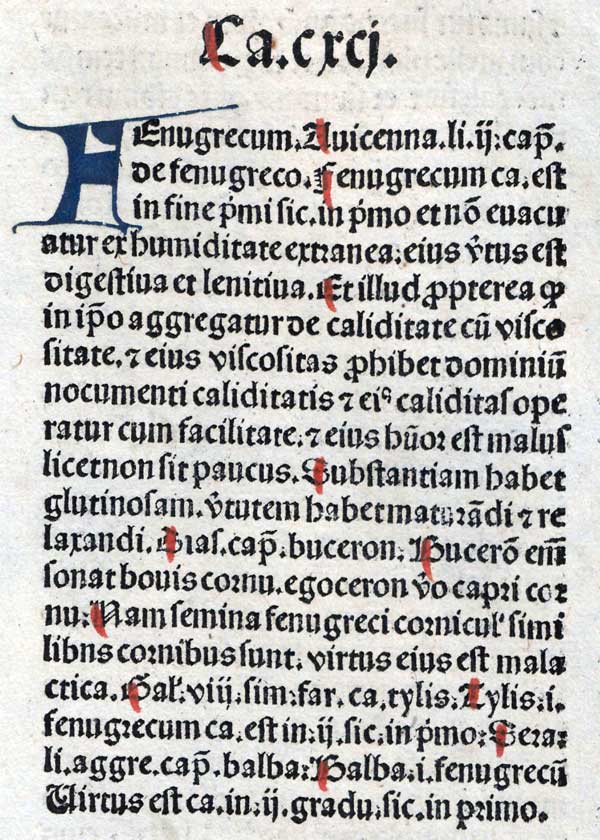 Ca.cxcj.
FEnugrecum.Auicenna.li.ij:cap̄.
de fenugreco.Fenugrecum ca.est
in fine p̄mi sic.in p̄mo et nō euacu
atur ex humiditate extranea:eius v̄tus est
digestiua et lenitiua.Et illud ꝓpterea ꝙ
in ip̄o aggregatur de caliditate cū visco
sitate.⁊ eius viscositas ꝓhibet dominiū
nocumenti caliditatis ⁊ eiꝰ caliditas ope
ratur cum facilitate:⁊ eius hūor est malus
licet non sit paucus.Substantiam habet
glutinosam.v̄tutem habet maturādi ⁊ re
laxandi.Dias.cap̄.buceron:Bucerō em̄
sonat bouis cornu.egoceron v̄o capri cor
nu:Nam semina fenugreci cornicul' simi
libns cornibus sunt:virtus eius est mala
ctica.Gal':viij:sim:far.ca.tylis:Tylis:i.
fenugrecum ca.est in:ij.sic.in p̄mo:Sera:
li.aggre.cap̄.balba:Balba:i fenugrecū
Uirtus est ca.in:ij.gradu:sic.in primo.